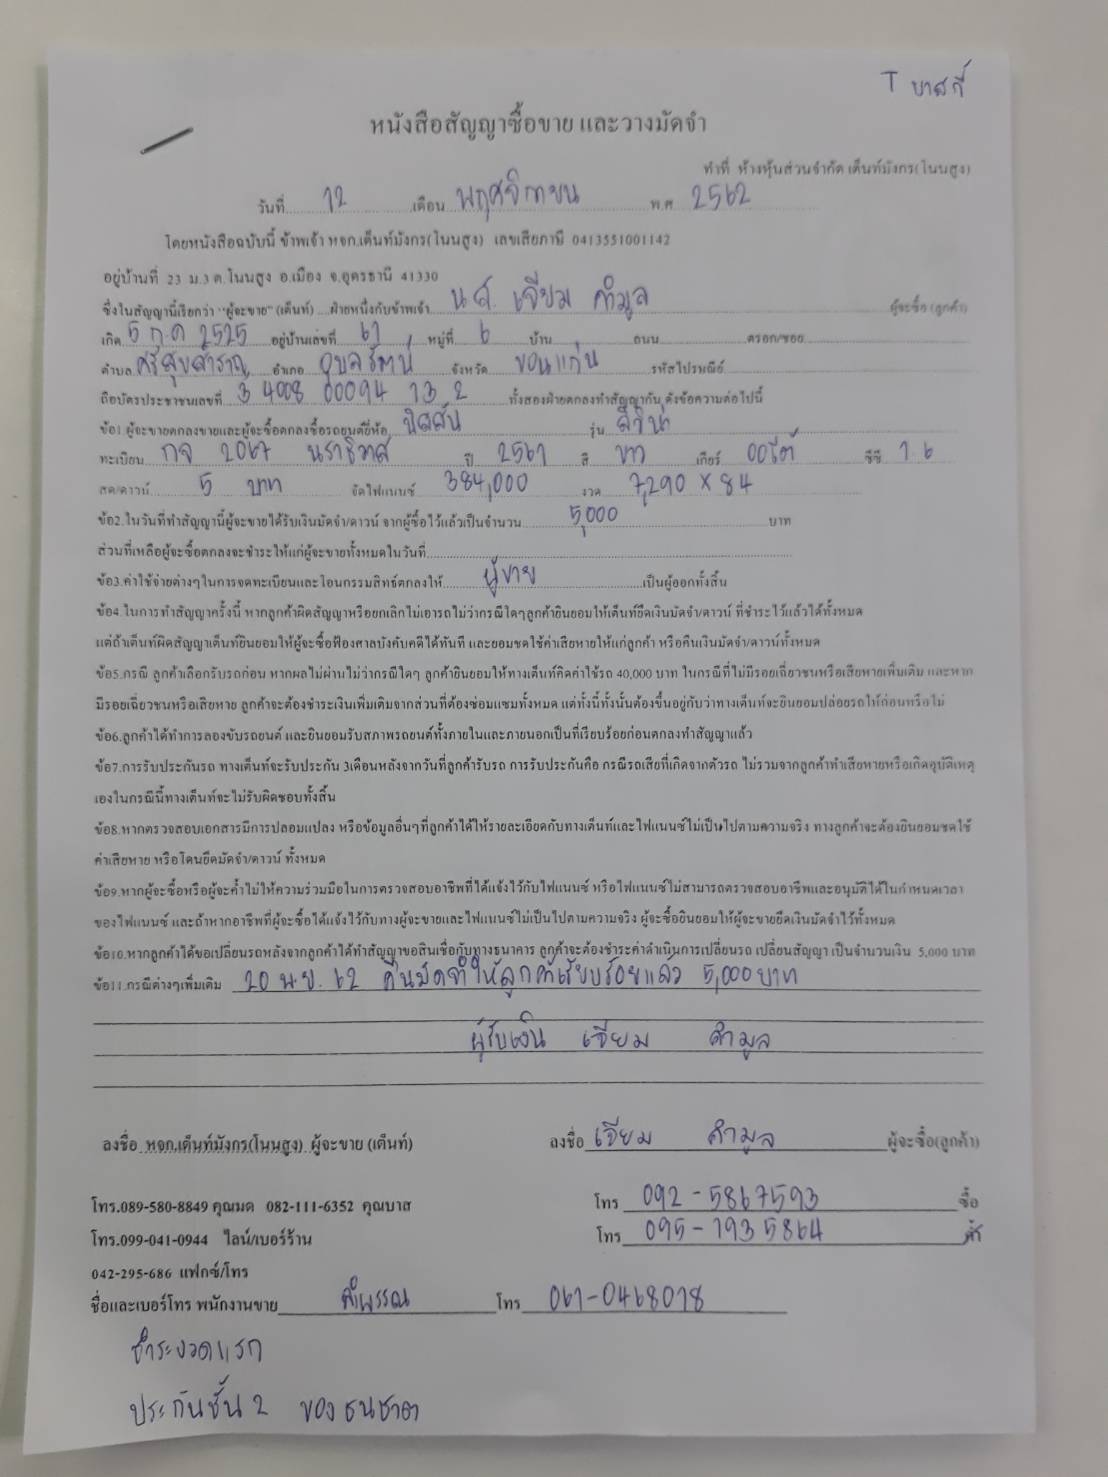 T บาสกี้
หนังสือสัญญาซื้อขาย และวางมัดจำ
ทำที่ ห้างหุ้นส่วนจำกัด เต็นท์มังกร(โนนสูง)
วันที่ 12 เดือน พฤศจิกายน พ.ศ 2562
โดยหนังสือฉบับนี้ ข้าพเจ้า หจก.เต็นท์มังกร(โนนสูง) เลขเสียภาษี 0413551001142
อยู่บ้านที่ 23 ม.3 ต.โนนสูง อ.เมือง จ.อุดรธานี 41330
ซึ่งในสัญญานี้เรียกว่า "ผู้จะขาย" (เต็นท์) ฝ่ายหนึ่งกับข้าพเจ้า น.ส. เจียม คำมูล ผู้จะซื้อ (ลูกค้า)
เกิด 5 ก.ค 2525 อยู่บ้านเลขที่ 61 หมู่ที่ 6 บ้าน ถนน ตรอก/ซอย
ตำบล ศรีสุขสำราญ อำเภอ อุบลรัตน์ จังหวัด ขอนแก่น รหัสไปรษณีย์
ถือบัตรประชาชนเลขที่ 3 4008 00094 13 2 ทั้งสองฝ่ายตกลงทำสัญญากัน ดังข้อความต่อไปนี้
ข้อ1.ผู้จะขายตกลงขายและผู้จะซื้อตกลงซื้อรถยนต์ยี่ห้อ นิสสัน รุ่น ลิวิน่า
ทะเบียน กจ 2067 นราธิวาส ปี 2561 สี ขาว เกียร์ ออโต้ ซีซี 1.6
สด/ดาวน์ 5 บาท จัดไฟแนนซ์ 384,000 งวด 7,290 x 84
ข้อ2.ในวันที่ทำสัญญานี้ผู้จะขายได้รับเงินมัดจำ/ดาวน์ จากผู้ซื้อไว้แล้วเป็นจำนวน 5,000 บาท
ส่วนที่เหลือผู้จะซื้อตกลงจะชำระให้แก่ผู้จะขายทั้งหมดในวันที่
ข้อ3.ค่าใช้จ่ายต่างๆในการจดทะเบียนและโอนกรรมสิทธ์ตกลงให้ ผู้ขาย เป็นผู้ออกทั้งสิ้น
ข้อ4.ในการทำสัญญาครั้งนี้ หากลูกค้าผิดสัญญาหรือยกเลิกไม่เอารถไม่ว่ากรณีใดๆลูกค้ายินยอมให้เต็นท์ยึดเงินมัดจำ/ดาวน์ ที่ชำระไว้แล้วได้ทั้งหมด
แต่ถ้าเต็นท์ผิดสัญญาเต็นท์ยินยอมให้ผู้จะซื้อฟ้องศาลบังคับคดีได้ทันที และยอมชดใช้ค่าเสียหายให้แก่ลูกค้า หรือคืนเงินมัดจำ/ดาวน์ทั้งหมด
ข้อ5.กรณี ลูกค้าเลือกรับรถก่อน หากผลไม่ผ่านไม่ว่ากรณีใดๆ ลูกค้ายินยอมให้ทางเต็นท์คิดค่าใช้รถ 40,000 บาท ในกรณีที่ไม่มีรอยเฉี่ยวชนหรือเสียหายเพิ่มเติม และหาก
มีรอยเฉี่ยวชนหรือเสียหาย ลูกค้าจะต้องชำระเงินเพิ่มเติมจากส่วนที่ต้องซ่อมแซมทั้งหมด แต่ทั้งนี้ทั้งนั้นต้องขึ้นอยู่กับว่าทางเต็นท์จะยินยอมปล่อยรถให้ก่อนหรือไม่
ข้อ6.ลูกค้าได้ทำการลองขับรถยนต์ และยินยอมรับสภาพรถยนต์ทั้งภายในและภายนอกเป็นที่เรียบร้อยก่อนตกลงทำสัญญาแล้ว
ข้อ7.การรับประกันรถ ทางเต็นท์จะรับประกัน 3เดือนหลังจากวันที่ลูกค้ารับรถ การรับประกันคือ กรณีรถเสียที่เกิดจากตัวรถ ไม่รวมจากลูกค้าทำเสียหายหรือเกิดอุบัติเหตุ
เองในกรณีนี้ทางเต็นท์จะไม่รับผิดชอบทั้งสิ้น
ข้อ8.หากตรวจสอบเอกสารมีการปลอมแปลง หรือข้อมูลอื่นๆที่ลูกค้าได้ให้รายละเอียดกับทางเต็นท์และไฟแนนซ์ไม่เป็นไปตามความจริง ทางลูกค้าจะต้องยินยอมชดใช้
ค่าเสียหาย หรือโดนยึดมัดจำ/ดาวน์ ทั้งหมด
ข้อ9.หากผู้จะซื้อหรือผู้จะค้ำไม่ให้ความร่วมมือในการตรวจสอบอาชีพที่ได้แจ้งไว้กับไฟแนนซ์ หรือไฟแนนซ์ไม่สามารถตรวจสอบอาชีพและอนุมัติได้ในกำหนดเวลา
ของไฟแนนซ์ และถ้าหากอาชีพที่ผู้จะซื้อได้แจ้งไว้กับทางผู้จะขายและไฟแนนซ์ไม่เป็นไปตามความจริง ผู้จะซื้อยินยอมให้ผู้จะขายยึดเงินมัดจำไว้ทั้งหมด
ข้อ10.หากลูกค้าได้ขอเปลี่ยนรถหลังจากลูกค้าได้ทำสัญญาขอสินเชื่อกับทางธนาคาร ลูกค้าจะต้องชำระค่าดำเนินการเปลี่ยนรถ เปลี่ยนสัญญา เป็นจำนวนเงิน 5,000 บาท
ข้อ11.กรณีต่างๆเพิ่มเติม 20 พ.ย. 62 คืนมัดจำให้ลูกค้าเรียบร้อยแล้ว 5,000 บาท
ผู้รับเงิน เจียม คำมูล
ลงชื่อ หจก.เต็นท์มังกร(โนนสูง) ผู้จะขาย (เต็นท์) ลงชื่อ เจียม คำมูล ผู้จะซื้อ(ลูกค้า)
โทร.089-580-8849 คุณมด 082-111-6352 คุณบาส โทร 092-5867593 ซื้อ
โทร.099-041-0944 ไลน์/เบอร์ร้าน โทร 095-1935864 ค้ำ
042-295-686 แฟกซ์/โทร
ชื่อและเบอร์โทร พนักงานขาย คำพรรณ โทร 061-0468018
ชำระงวดแรก
ประกันชั้น 2 ของ ธนชาต